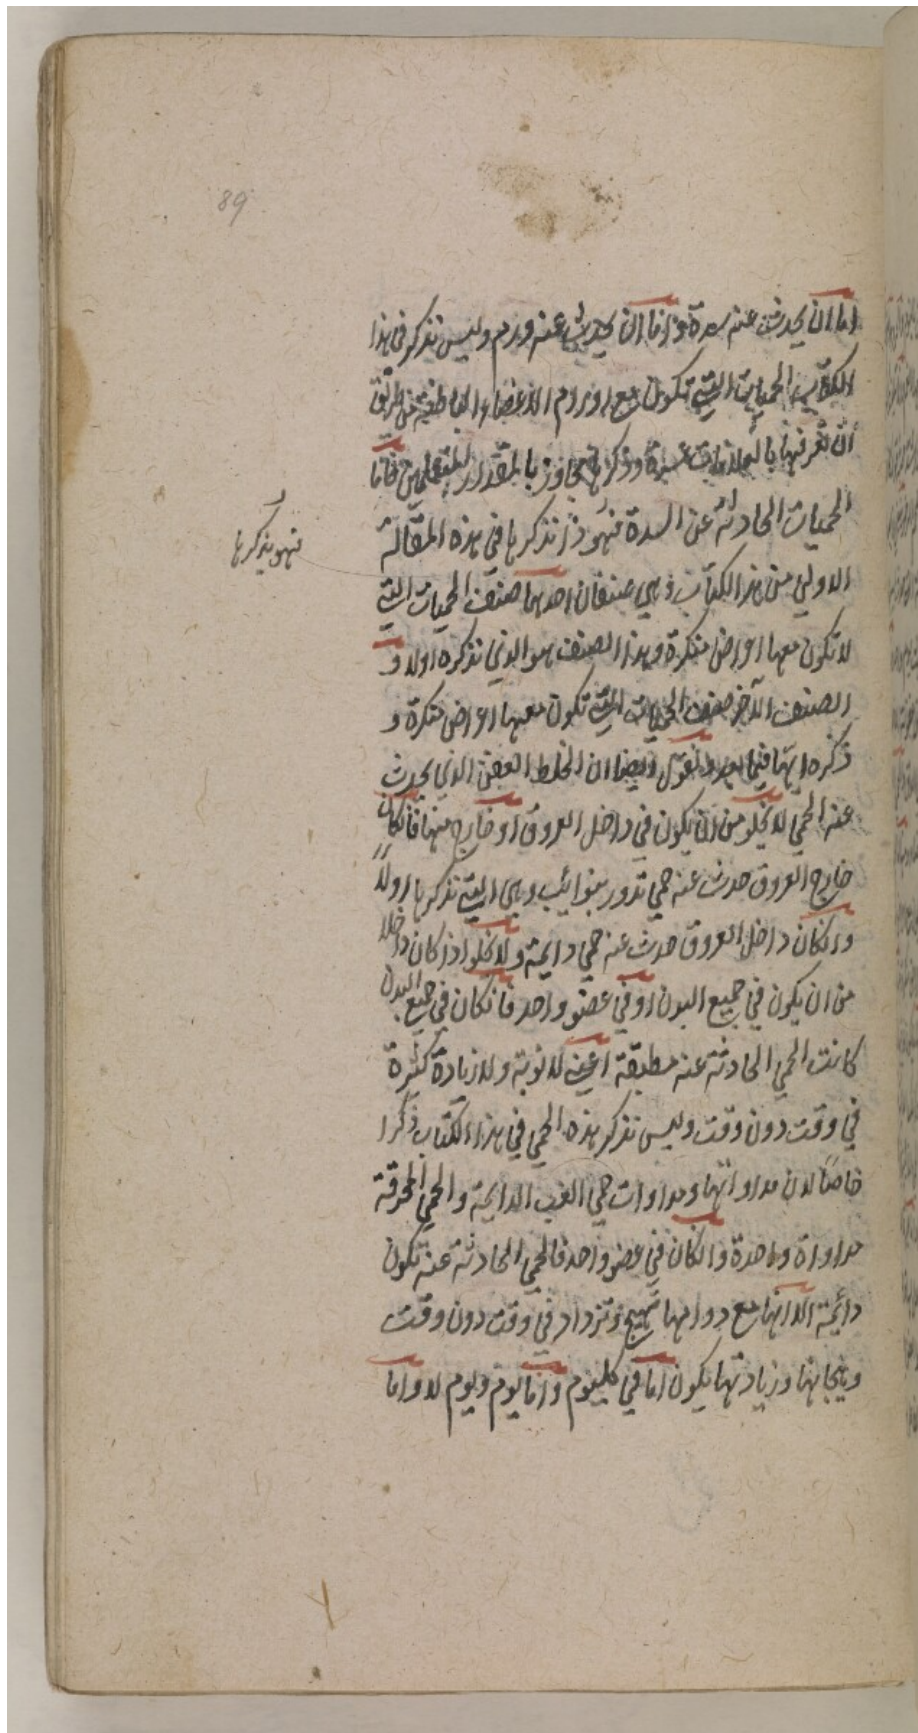 89
اما ان يحدث عنه سدة واما ان يحدث عنه ورم وليس نذكر في هذا
الكتاب الحميات التي تكون مع اورام الاعضاء الباطنة من طريق
ان تعرفها بالعلامات وذكرها يجاوز بالمقدار المتعلمين فاما
الحميات الحادثة عن السدة فهو ذا نذكرها في هذه المقالة
فهو يذكرها
الاولى من هذا الكتاب وهي صنفان احدهما صنف الحميات التي
لا تكون معها اعراض منكرة وهذا الصنف هو الذي نذكره اولا و
الصنف الآخر صنف الحميات التي تكون معها اعراض منكرة و
ذكره ايها فيما بعد ونقول ايضا ان الخلط العفن الذي يحدث
عنه الحمى لا يخلو من ان يكون في داخل العروق او خارج منها فانكان
خارج العروق حدث عنه حمى تدور بنوايب وهي التي نذكرها اولاً
وانكان داخل العروق حدث عنه حمى دايمة ولا يخلوا اذا كان داخلا
من ان يكون في جميع البدن او في عضو واحد فانكان في جميع البدن
كانت الحمى الحادثة عنه مطبقة اعني لا نوبة ولا زيادة كثيرة
في وقت دون وقت وليس نذكر هذه الحمى في هذا الكتاب ذكرا
خاصاً لان مداواتها ومداوات حمى الغب الدايمة والحمى المحرقة
مداواة واحدة وانكان في عضو واحد فالحمى الحادثة عنه تكون
دائمة الا انها مع دوامها تهيج وتزداد في وقت دون وقت
وهيجانها وزيادتها يكون اما في كليوم واما يوم ويوم لا واما